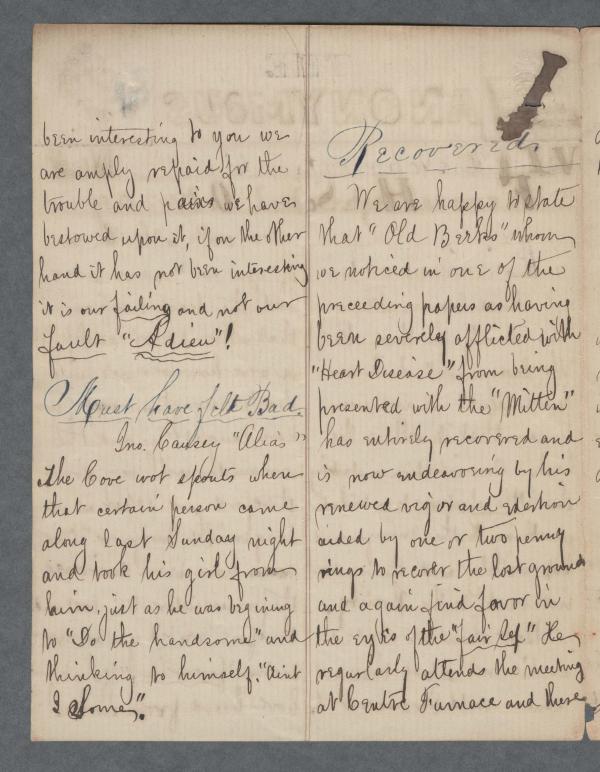 been interesting to you we
are amply repaid for the
trouble and pains we have
bestowed upon it, if on the other
hand it has not been interesting
it is our failing and not our
fault "Adieu"!
Must have felt Bad.
Jno. Causey "Alias"
The Cove wot spouts where
that certain person came
along last Sunday night
and took his girl from
him, just as he was begining
to "Do the handsome" and
thinking to himself. "Aint
I Some".
Recovered.
We are happy to state
that "Old Berks" whom
we noticed in one of the
preceeding papers as having
been severely afflicted with
"Heart Disease" from being
presented with the "Mitten"
has entirely recovered and
is now endeavoring by his
renewed vigor and exertion
aided by one or two penny
rings to recover the lost ground
and again find favor in
the eyes of the "fair Sex" He
regularly attends the meeting
at Centre Furnace and there